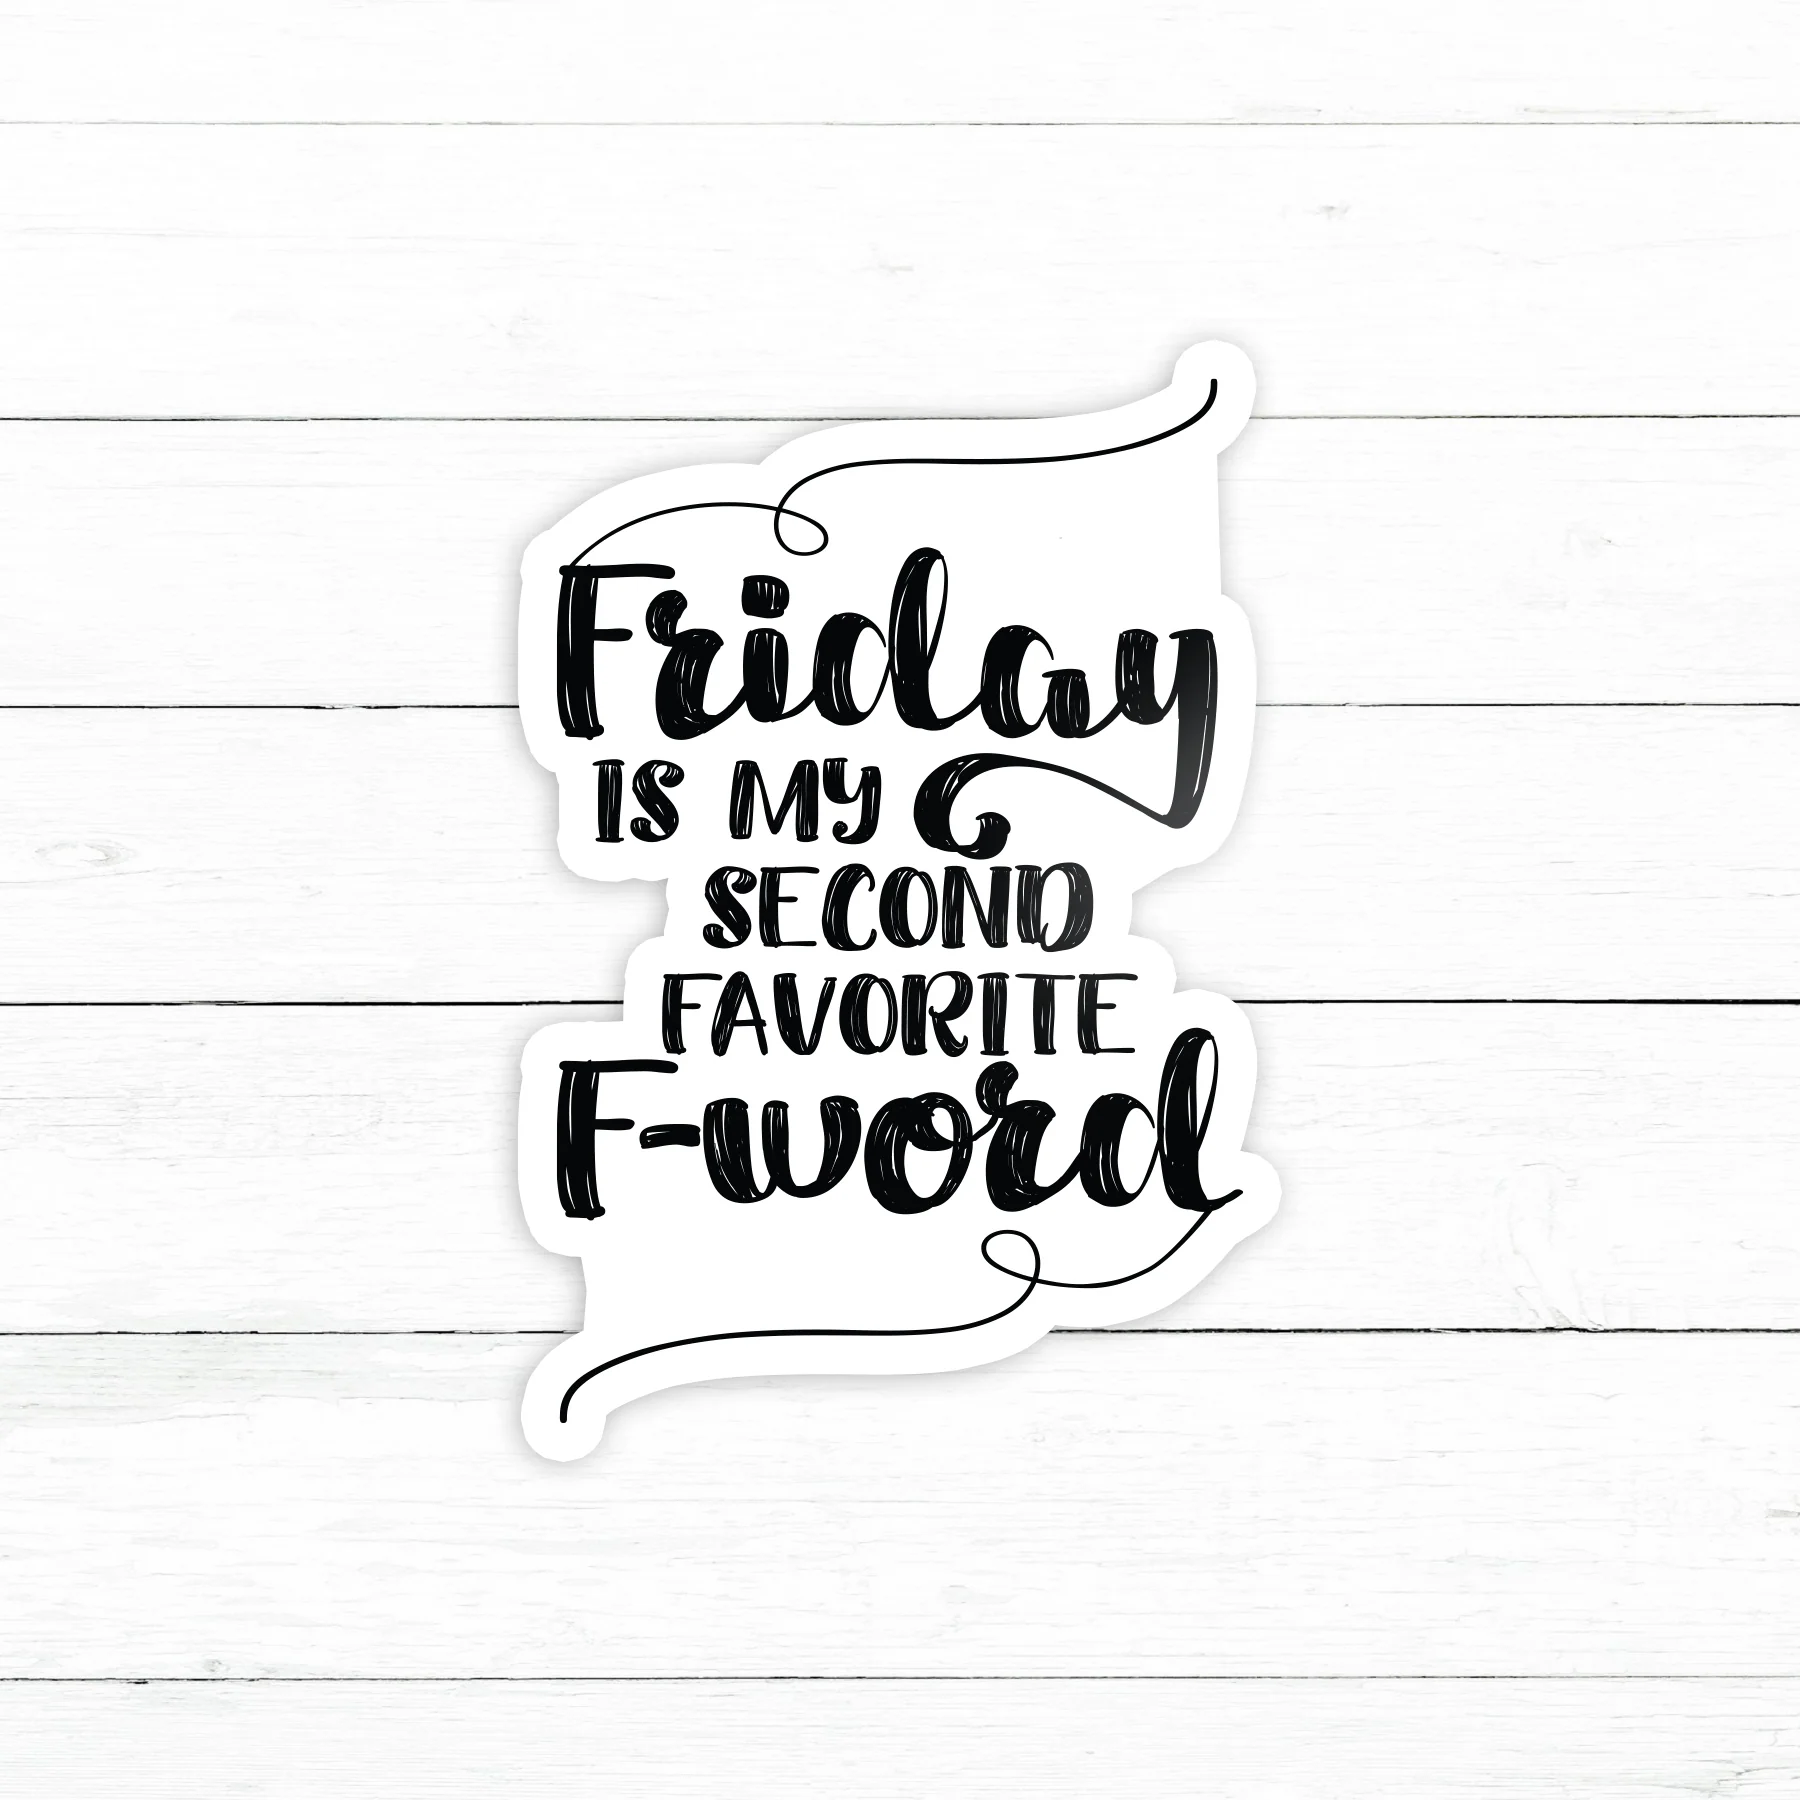 Friday
IS MY
SECOND
FAVORITE
F-word